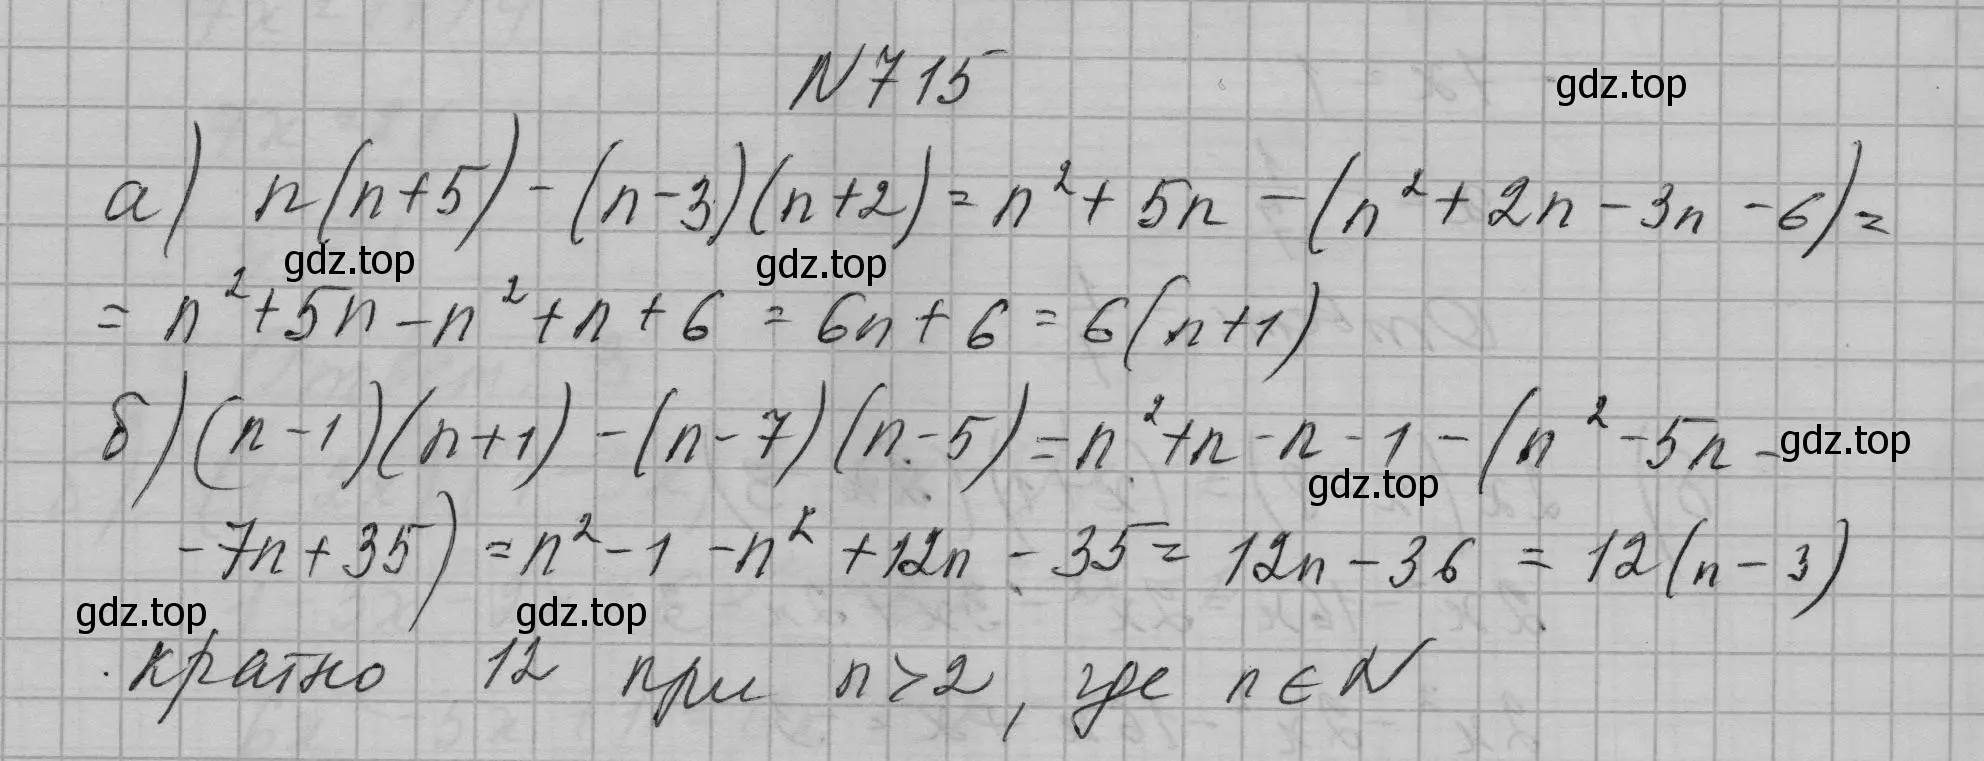 N 715
gdz.top
а) n(n+5) - (n-3)(n+2) = n² + 5n - (n² + 2n - 3n - 6) =
gdz.top gdz.top
= n² + 5n - n² + n + 6 = 6n + 6 = 6(n+1)
б) (n-1)(n+1) - (n-7)(n-5) = n² + n - n - 1 - (n² - 5n -
gdz.top gdz.top
- 7n + 35) = n² - 1 - n² + 12n - 35 = 12n - 36 = 12(n - 3)
gdz.top gdz.top
кратно 12 при n > 2, где n ∈ N